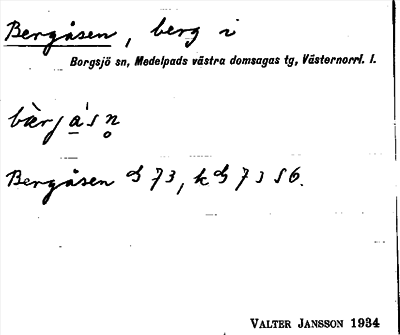 Bergåsen, berg i
Borgsjö sn, Medelpads västra domsagas tg, Västernorrl. l.
Bergåsen 73, k 73 S6.
VALTER JANSSON 1934